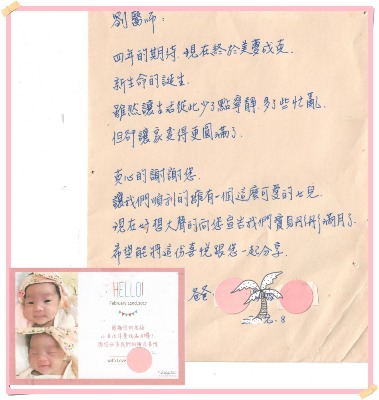 劉醫師：
四年的期待，現在終於美夢成真
新生命的誕生
雖然讓生活從此少了點寧靜，多了些忙亂
但卻讓家變得更圓滿了
真心的謝謝您
讓我們順利的擁有一個這麼可愛的女兒
現在好想大聲的向您宣告我們寶貝彤彤滿月了
希望能將這份喜悅跟您一起分享
爸爸
8
HELLO!
February 22nd, 2017
with Love